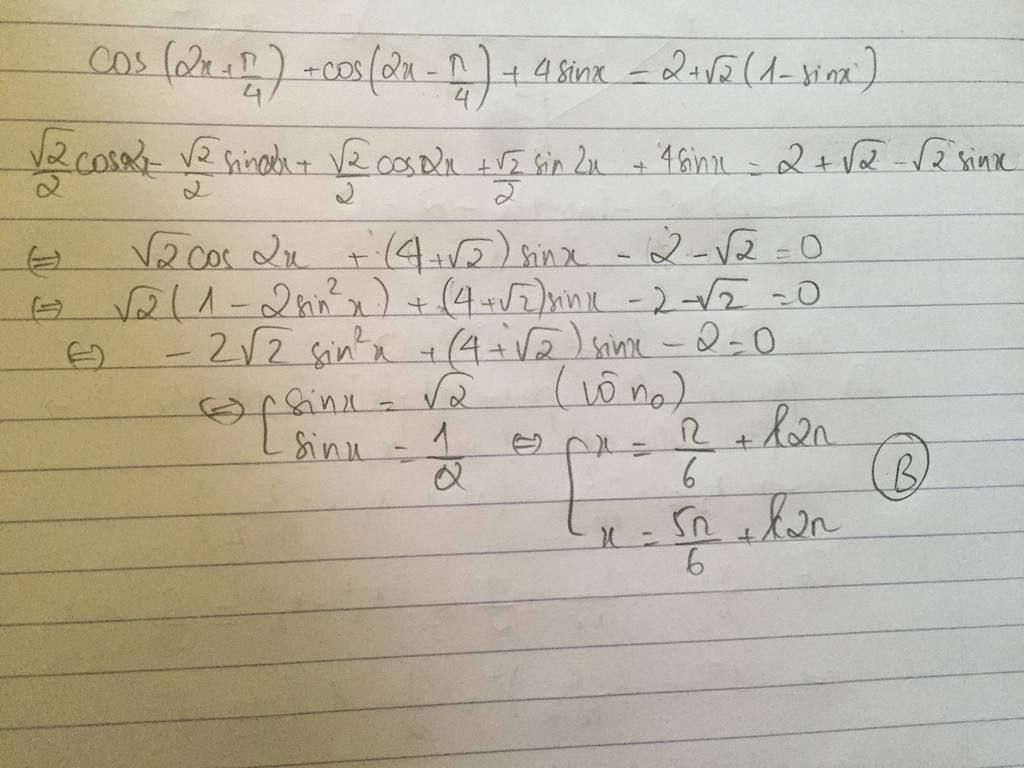 cos(2x + π/4) + cos(2x - π/4) + 4sinx = 2 + √2(1 - sinx)
√2/2 cos2x - √2/2 sin2x + √2/2 cos2x + √2/2 sin 2x + 4sinx = 2 + √2 - √2 sinx
⇔ √2 cos 2x + (4 + √2) sinx - 2 - √2 = 0
⇔ √2(1 - 2sin²x) + (4 + √2)sinx - 2 - √2 = 0
⇔ - 2√2 sin²x + (4 + √2) sinx - 2 = 0
⇔ [ sinx = √2 (vô n₀)
sinx = 1/2 ⇔ [ x = π/6 + k2π
x = 5π/6 + k2π
B